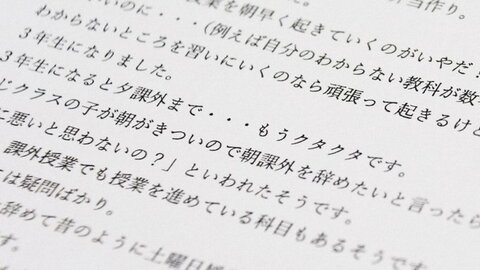 弁当作り。
授業を朝早く起きていくのがいやだ！
いのに・・・(例えば自分のわからない教科が数
わからないところを習いにいくのなら頑張って起きるけと
3年生になりました。
3年生になると夕課外まで・・・もうクタクタです。
じクラスの子が朝がきついので朝課外を辞めたいと言ったら
に悪いと思わないの？」といわれたそうです。
課外授業でも授業を進めている科目もあるそうです
は疑問ばかり。
辞めて昔のように土曜日
す。